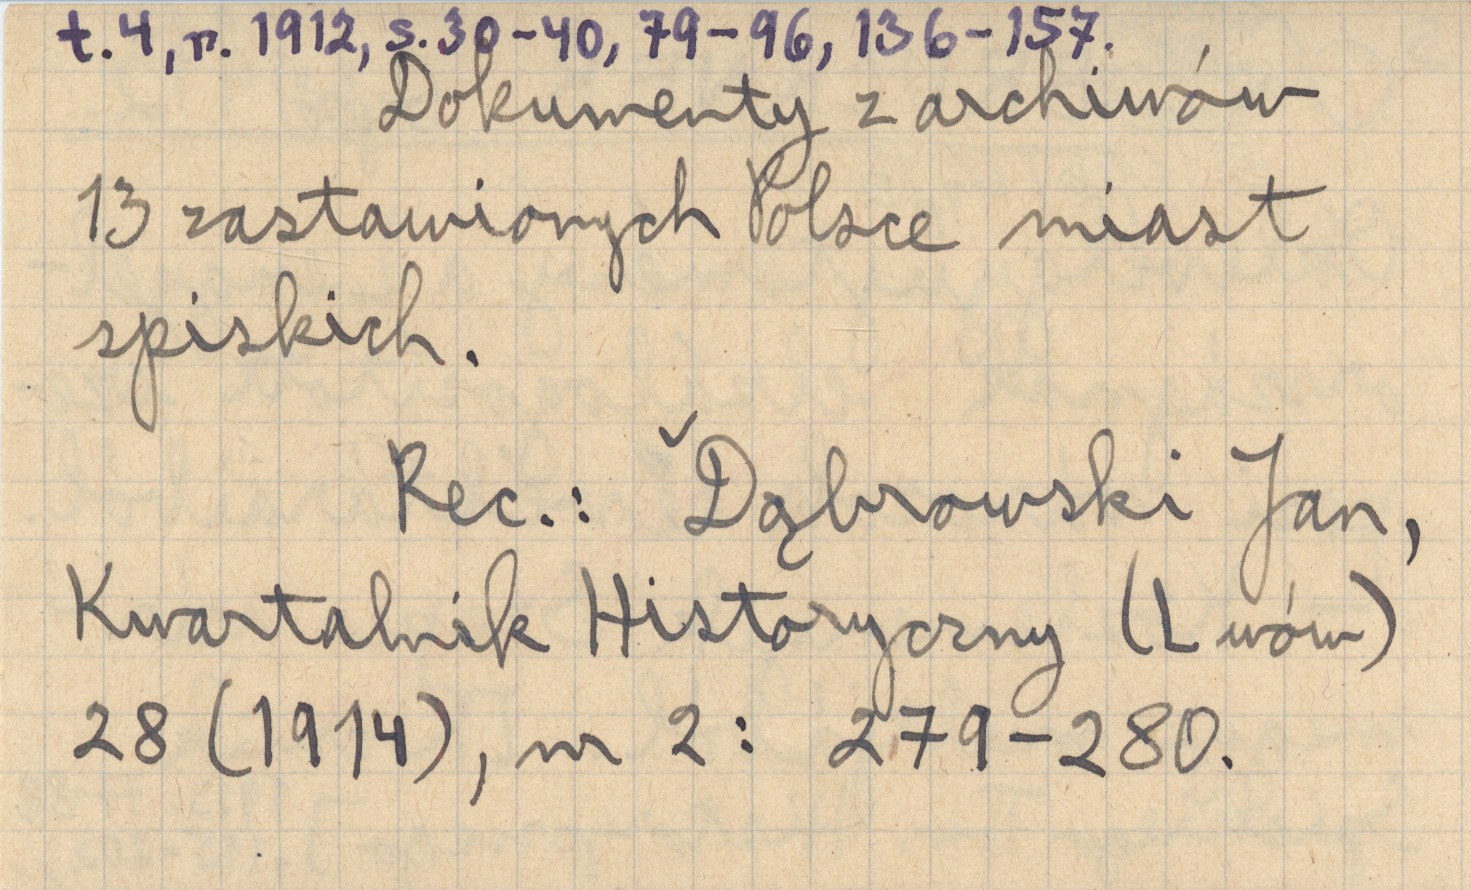 t. 4, r. 1912, s. 30-40, 79-96, 136-157.
Dokumenty z archiwów
13 zastawionych Polsce miast
spiskich.
Rec.: Dąbrowski Jan,
Kwartalnik Historyczny (Lwów)
28 (1914), nr 2: 279-280.